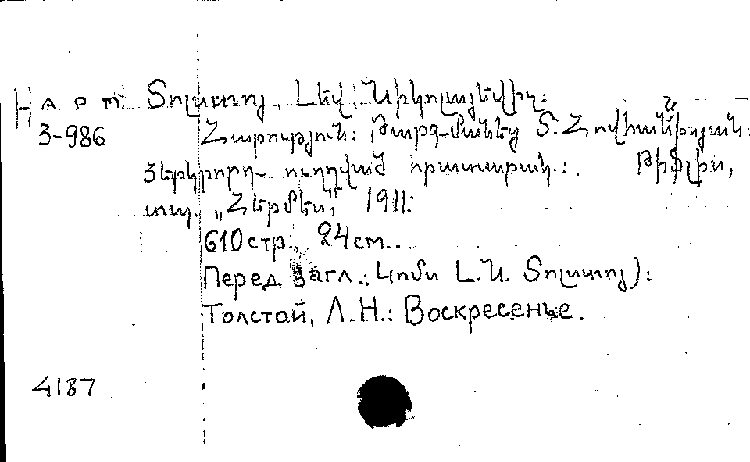 Н а р т Տոլստոյ, Լեվ Նիկոլայեվիչ:
3-986 Հարություն: Թարգմանեց Տ. Հովհաննիսյան:
Յերկրորդ ուղղված հրատարակ.: Թիֆլիս,
տպ. „Հերմես", 1911:
610 стр., 24 см..
Перед загл.: Կոմս Լ.Ն. Տոլստոյ):
Толстой, Л.Н.: Воскресенье.
4187